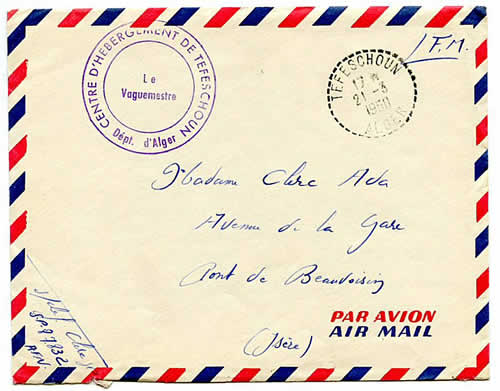 CENTRE D'HÉBERGEMENT DE TEFESCHOUN
Le
Vaguemestre
Dépt. d'Alger
F.M.
TEFESCHOUN
17 H
21 - 3
1960
ALGER
Madame Clerc Ada
Avenue de la Gare
Pont de Beauvoisin
(Isère)
PAR AVION
AIR MAIL
Clerc
AFN